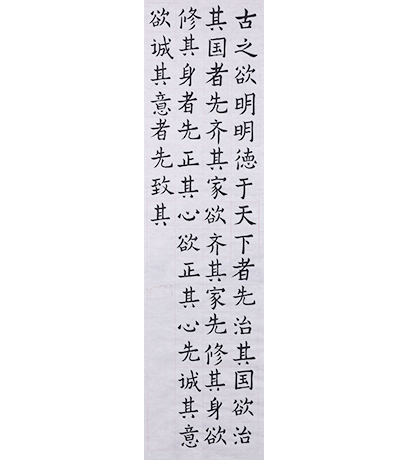 古之欲明明德于天下者先治其国欲治
其国者先齐其家欲齐其家先修其身欲
修其身者先正其心欲正其心先诚其意
欲诚其意者先致其